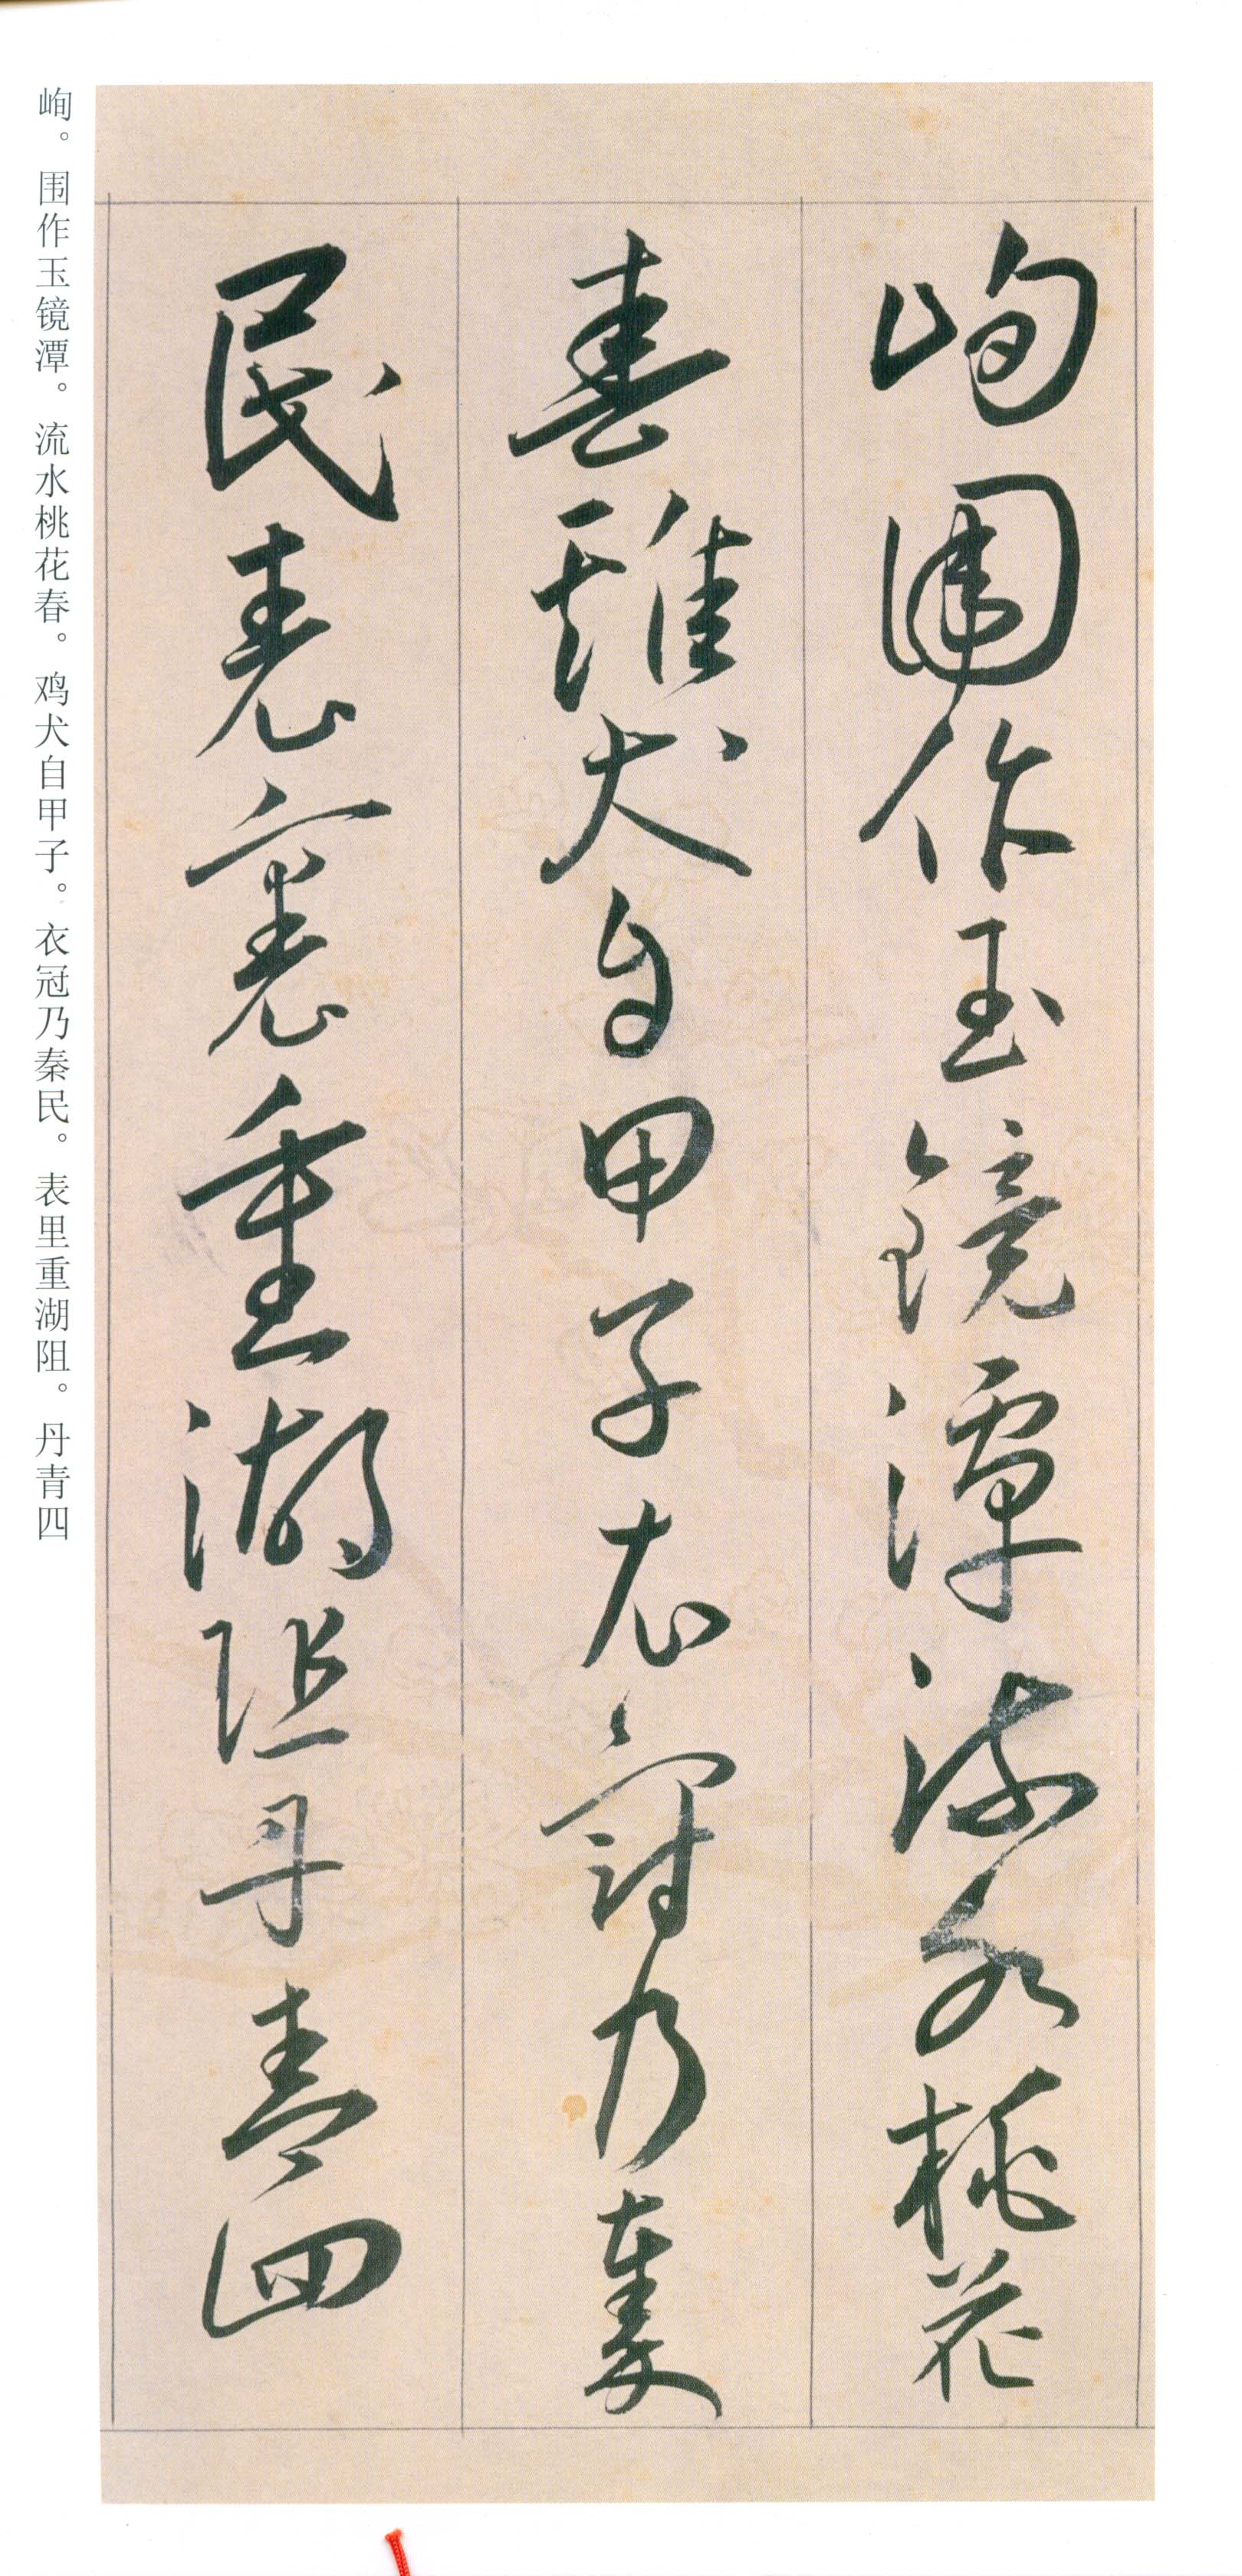 峋围作玉镜潭流水桃花
春雞犬自甲子衣冠乃秦
民表裏重湖阻丹青四
峋。围作玉镜潭。流水桃花春。鸡犬自甲子。衣冠乃秦民。表里重湖阻。丹青四